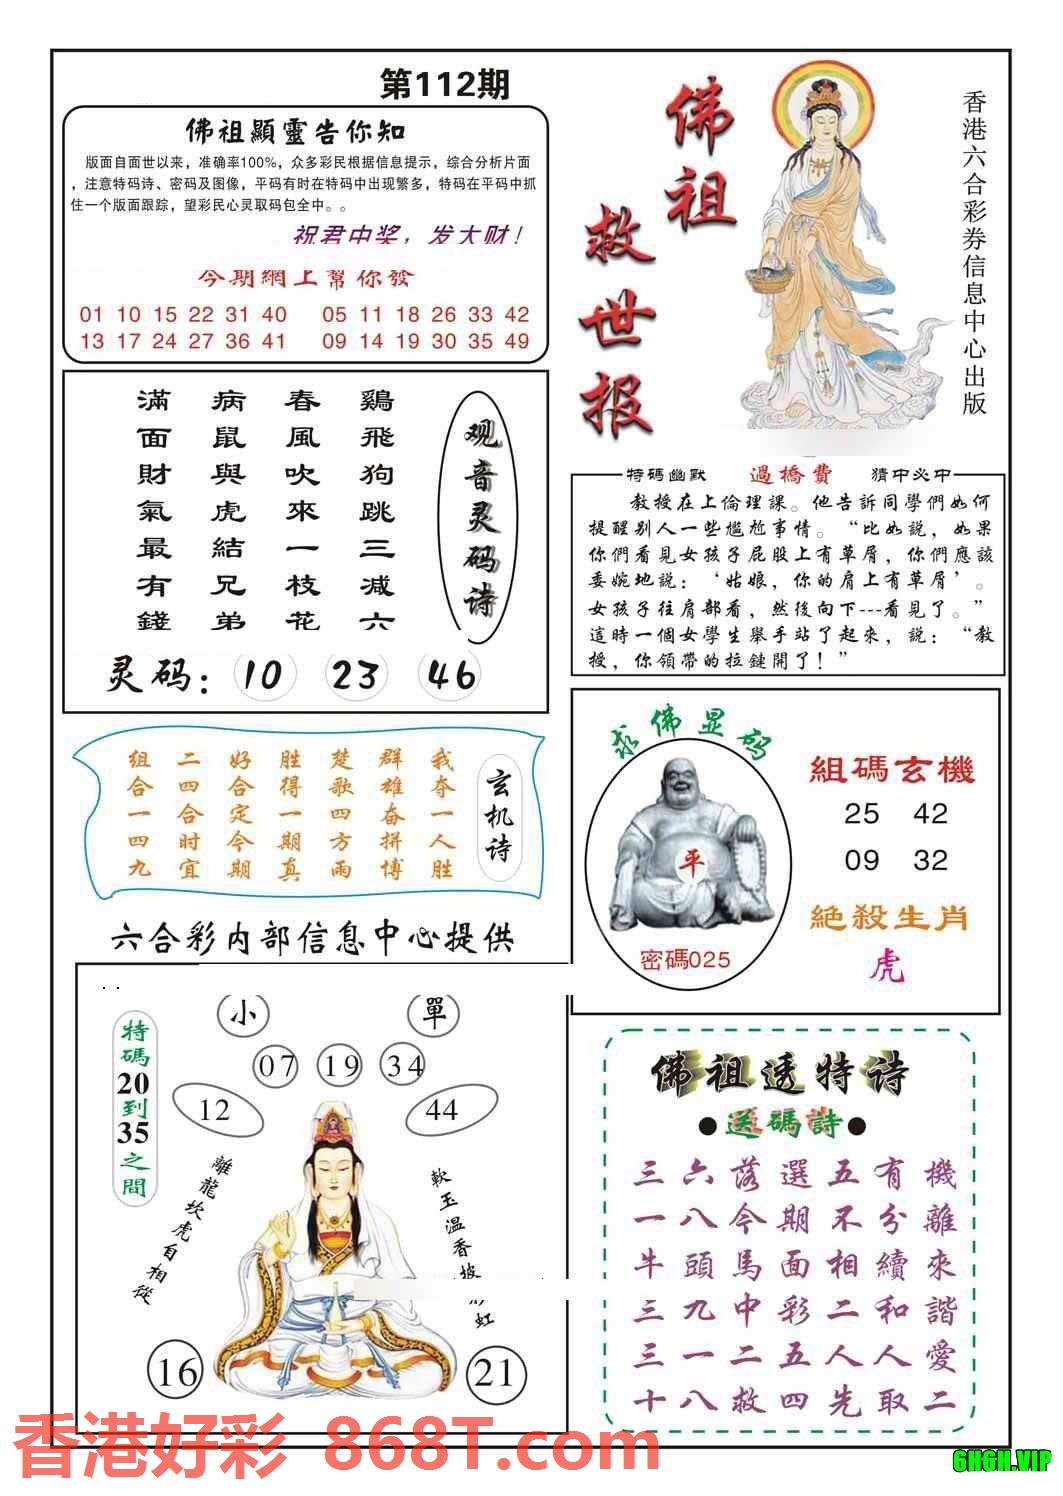 第112期
佛祖顯靈告你知
版面自面世以来，准确率100%，众多彩民根据信息提示，综合分析片面
，注意特码诗、密码及图像，平码有时在特码中出现繁多，特码在平码中抓
住一个版面跟踪，望彩民心灵取码包全中。。
祝君中奖，发大财！
今期網上幫你發
01 10 15 22 31 40 05 11 18 26 33 42
13 17 24 27 36 41 09 14 19 30 35 49
佛祖
救世报
香港六合彩券信息中心出版
观音灵码诗
鷄飛狗跳三减六
春風吹來一枝花
病鼠與虎結兄弟
滿面財氣最有錢
灵码：10 23 46
特碼幽默 過橋費 猜中必中
教授在上倫理課。他告訴同學們如何
提醒别人一些尴尬事情。“比如説，如果
你們看見女孩子屁股上有草屑，你們應該
委婉地説：‘姑娘，你的肩上有草屑’。
女孩子往肩部看，然後向下---看見了。”
這時一個女學生舉手站了起來，説：“教
授，你領帶的拉鏈開了！”
玄机诗
我夺一人胜
群雄奋拼博
楚歌四方雨
胜得一期真
好合定今期
二四合时宜
组合一四九
求佛显码
平
密碼025
組碼玄機
25 42
09 32
絶殺生肖
虎
六合彩内部信息中心提供
小 單
07 19 34
12 44
特碼20到35之間
離龍坎虎自相從
軟玉温香披彩虹
16 21
佛祖透特诗
●送碼詩●
三六落選五有機
一八今期不分離
牛頭馬面相續來
三九中彩二和諧
三一二五人人愛
十八救四先取二
香港好彩 868T.com
6H6H.VIP